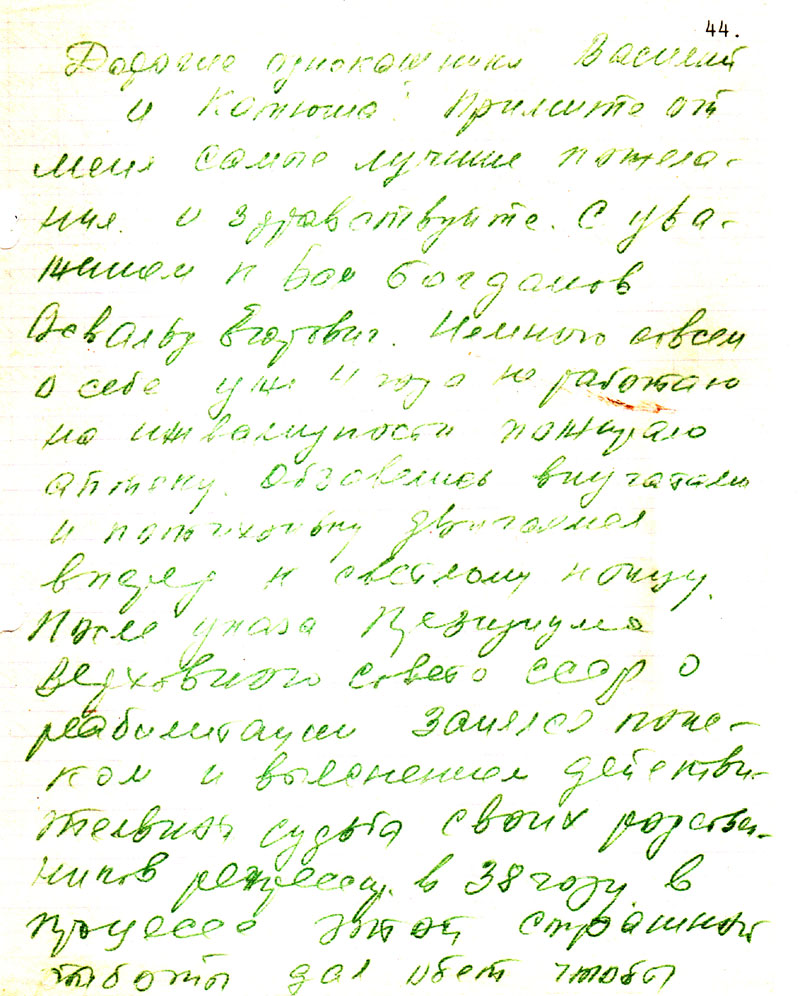 44.
Дорогие однокашники Василий
и Катюша! Примите от
меня самые лучшие пожела-
ния. и здравствуйте. С ува-
жением к Вам Богданов
Освальд Егорович. Немного совсем
о себе уже 4 года не работаю
на инвалидности пожираю
аптеку. Обзавелись внучатами
и потихоньку двигаемся
вперед к светлому концу.
После указа Президиума
Верховного совета СССР о
реабилитации занялся поис-
ком и выяснением действи-
тельной судьбы своих родствен-
ников репрессир. в 38 году. в
процессе этой страшной
работы дал обет чтобы